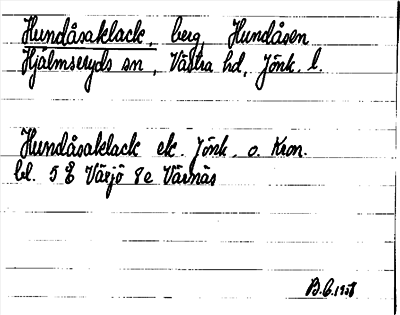 Hundåsaklack, berg, Hundåsen
Hjälmseryds sn, Västra hd, Jönk. l.
Hundåsaklack ek. Jönk. o. Kron.
bl. 5 E Växjö 8e Värnäs
B.C. 1958